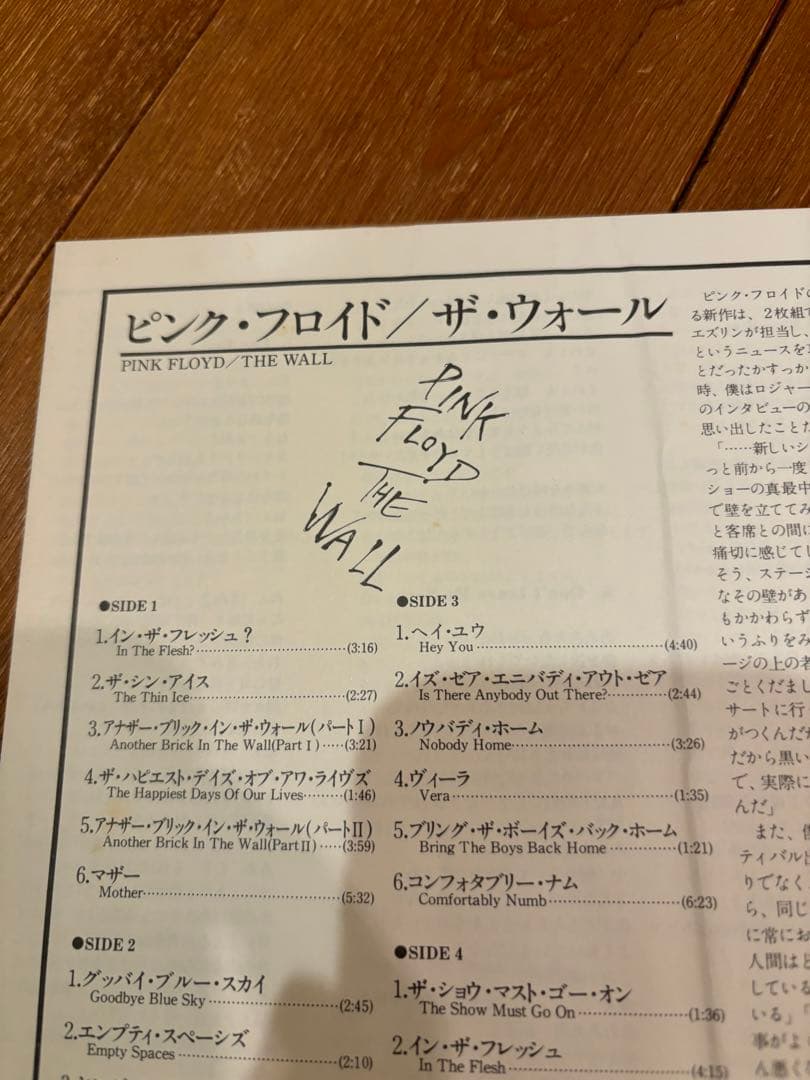 ピンク・フロイド／ザ・ウォール
PINK FLOYD/THE WALL
PINK
FLOYD
THE
WALL
●SIDE 1
1.イン・ザ・フレッシュ？
In The Flesh?……(3:16)
2.ザ・シン・アイス
The Thin Ice……(2:27)
3.アナザー・ブリック・イン・ザ・ウォール(パートI)
Another Brick In The Wall(Part I)……(3:21)
4.ザ・ハピエスト・デイズ・オブ・アワ・ライヴズ
The Happiest Days Of Our Lives……(1:46)
5.アナザー・ブリック・イン・ザ・ウォール(パートII)
Another Brick In The Wall(Part II)……(3:59)
6.マザー
Mother……(5:32)
●SIDE 2
1.グッバイ・ブルー・スカイ
Goodbye Blue Sky……(2:45)
2.エンプティ・スペーシズ
Empty Spaces……(2:10)
●SIDE 3
1.ヘイ・ユウ
Hey You……(4:40)
2.イズ・ゼア・エニバディ・アウト・ゼア
Is There Anybody Out There?……(2:44)
3.ノウバディ・ホーム
Nobody Home……(3:26)
4.ヴィーラ
Vera……(1:35)
5.ブリング・ザ・ボーイズ・バック・ホーム
Bring The Boys Back Home……(1:21)
6.コンフォタブリー・ナム
Comfortably Numb……(6:23)
●SIDE 4
1.ザ・ショウ・マスト・ゴー・オン
The Show Must Go On……(1:36)
2.イン・ザ・フレッシュ
In The Flesh……(4:15)
ピンク・フロイドの
る新作は、2枚組で
エズリンが担当し、
というニュースを
とだったかすっか
時、僕はロジャー
のインタビューの
思い出したことだ
「……新しいシ
っと前から一度
ショーの真最中
で壁を立ててみ
と客席との間に
痛切に感じてし
そう、ステージ
なその壁があ
もかかわらず
いうふりをみ
ージの上の者
ごとくだまし
サートに行
がつくんだ
だから黒い
で、実際に
んだ」
また、僕
ティバルに
りでなく
ら、同じ
に常にお
人間はど
している
いる」「
事がよく
ん悪く